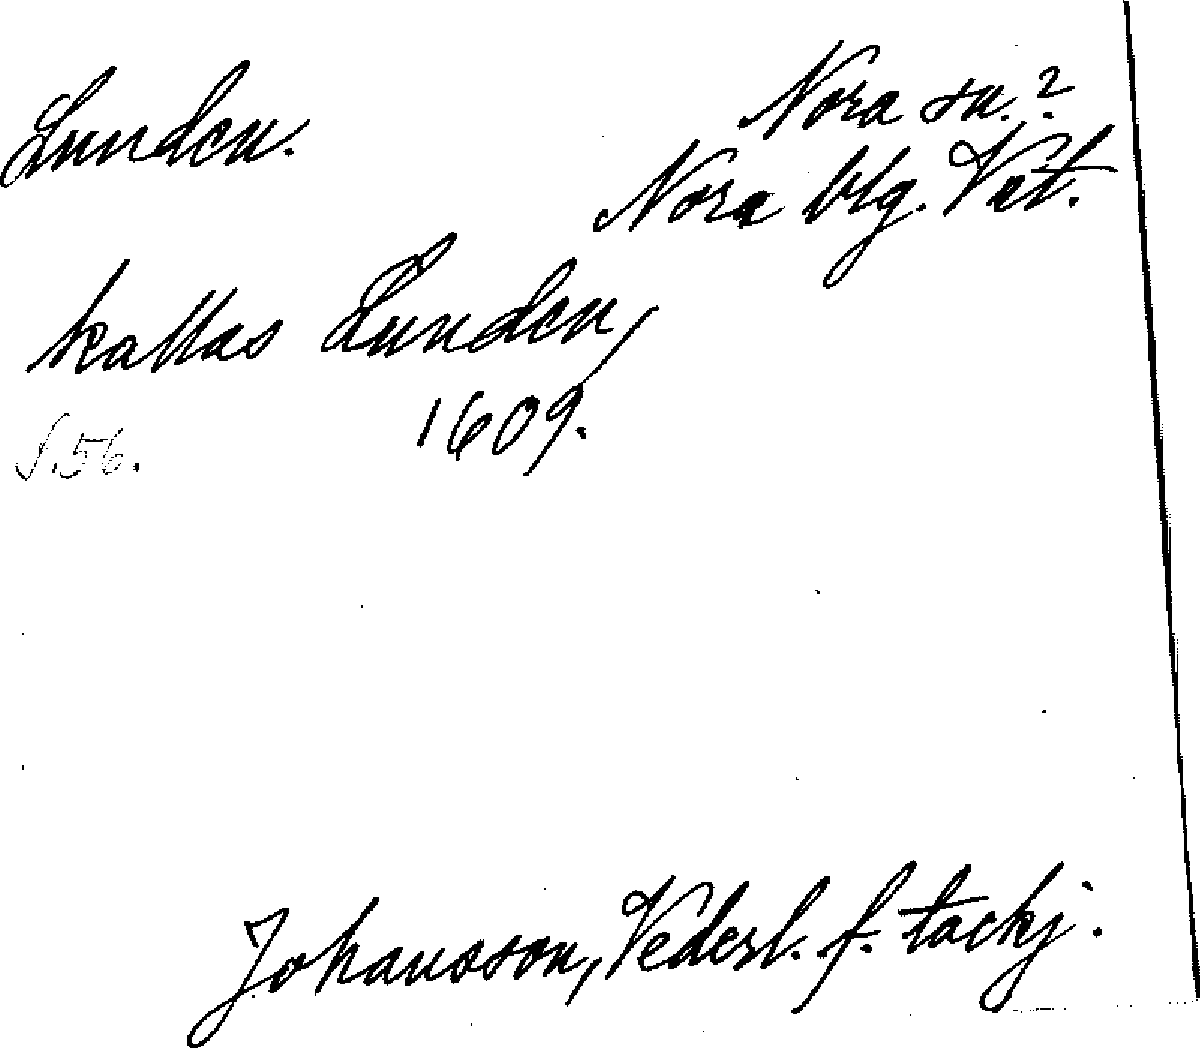 Lunden.
Nora sn.?
Nora blg. Vst.
kallas Lunden,
1609.
S. 56.
Johansson, Vedersl. f. tackj.